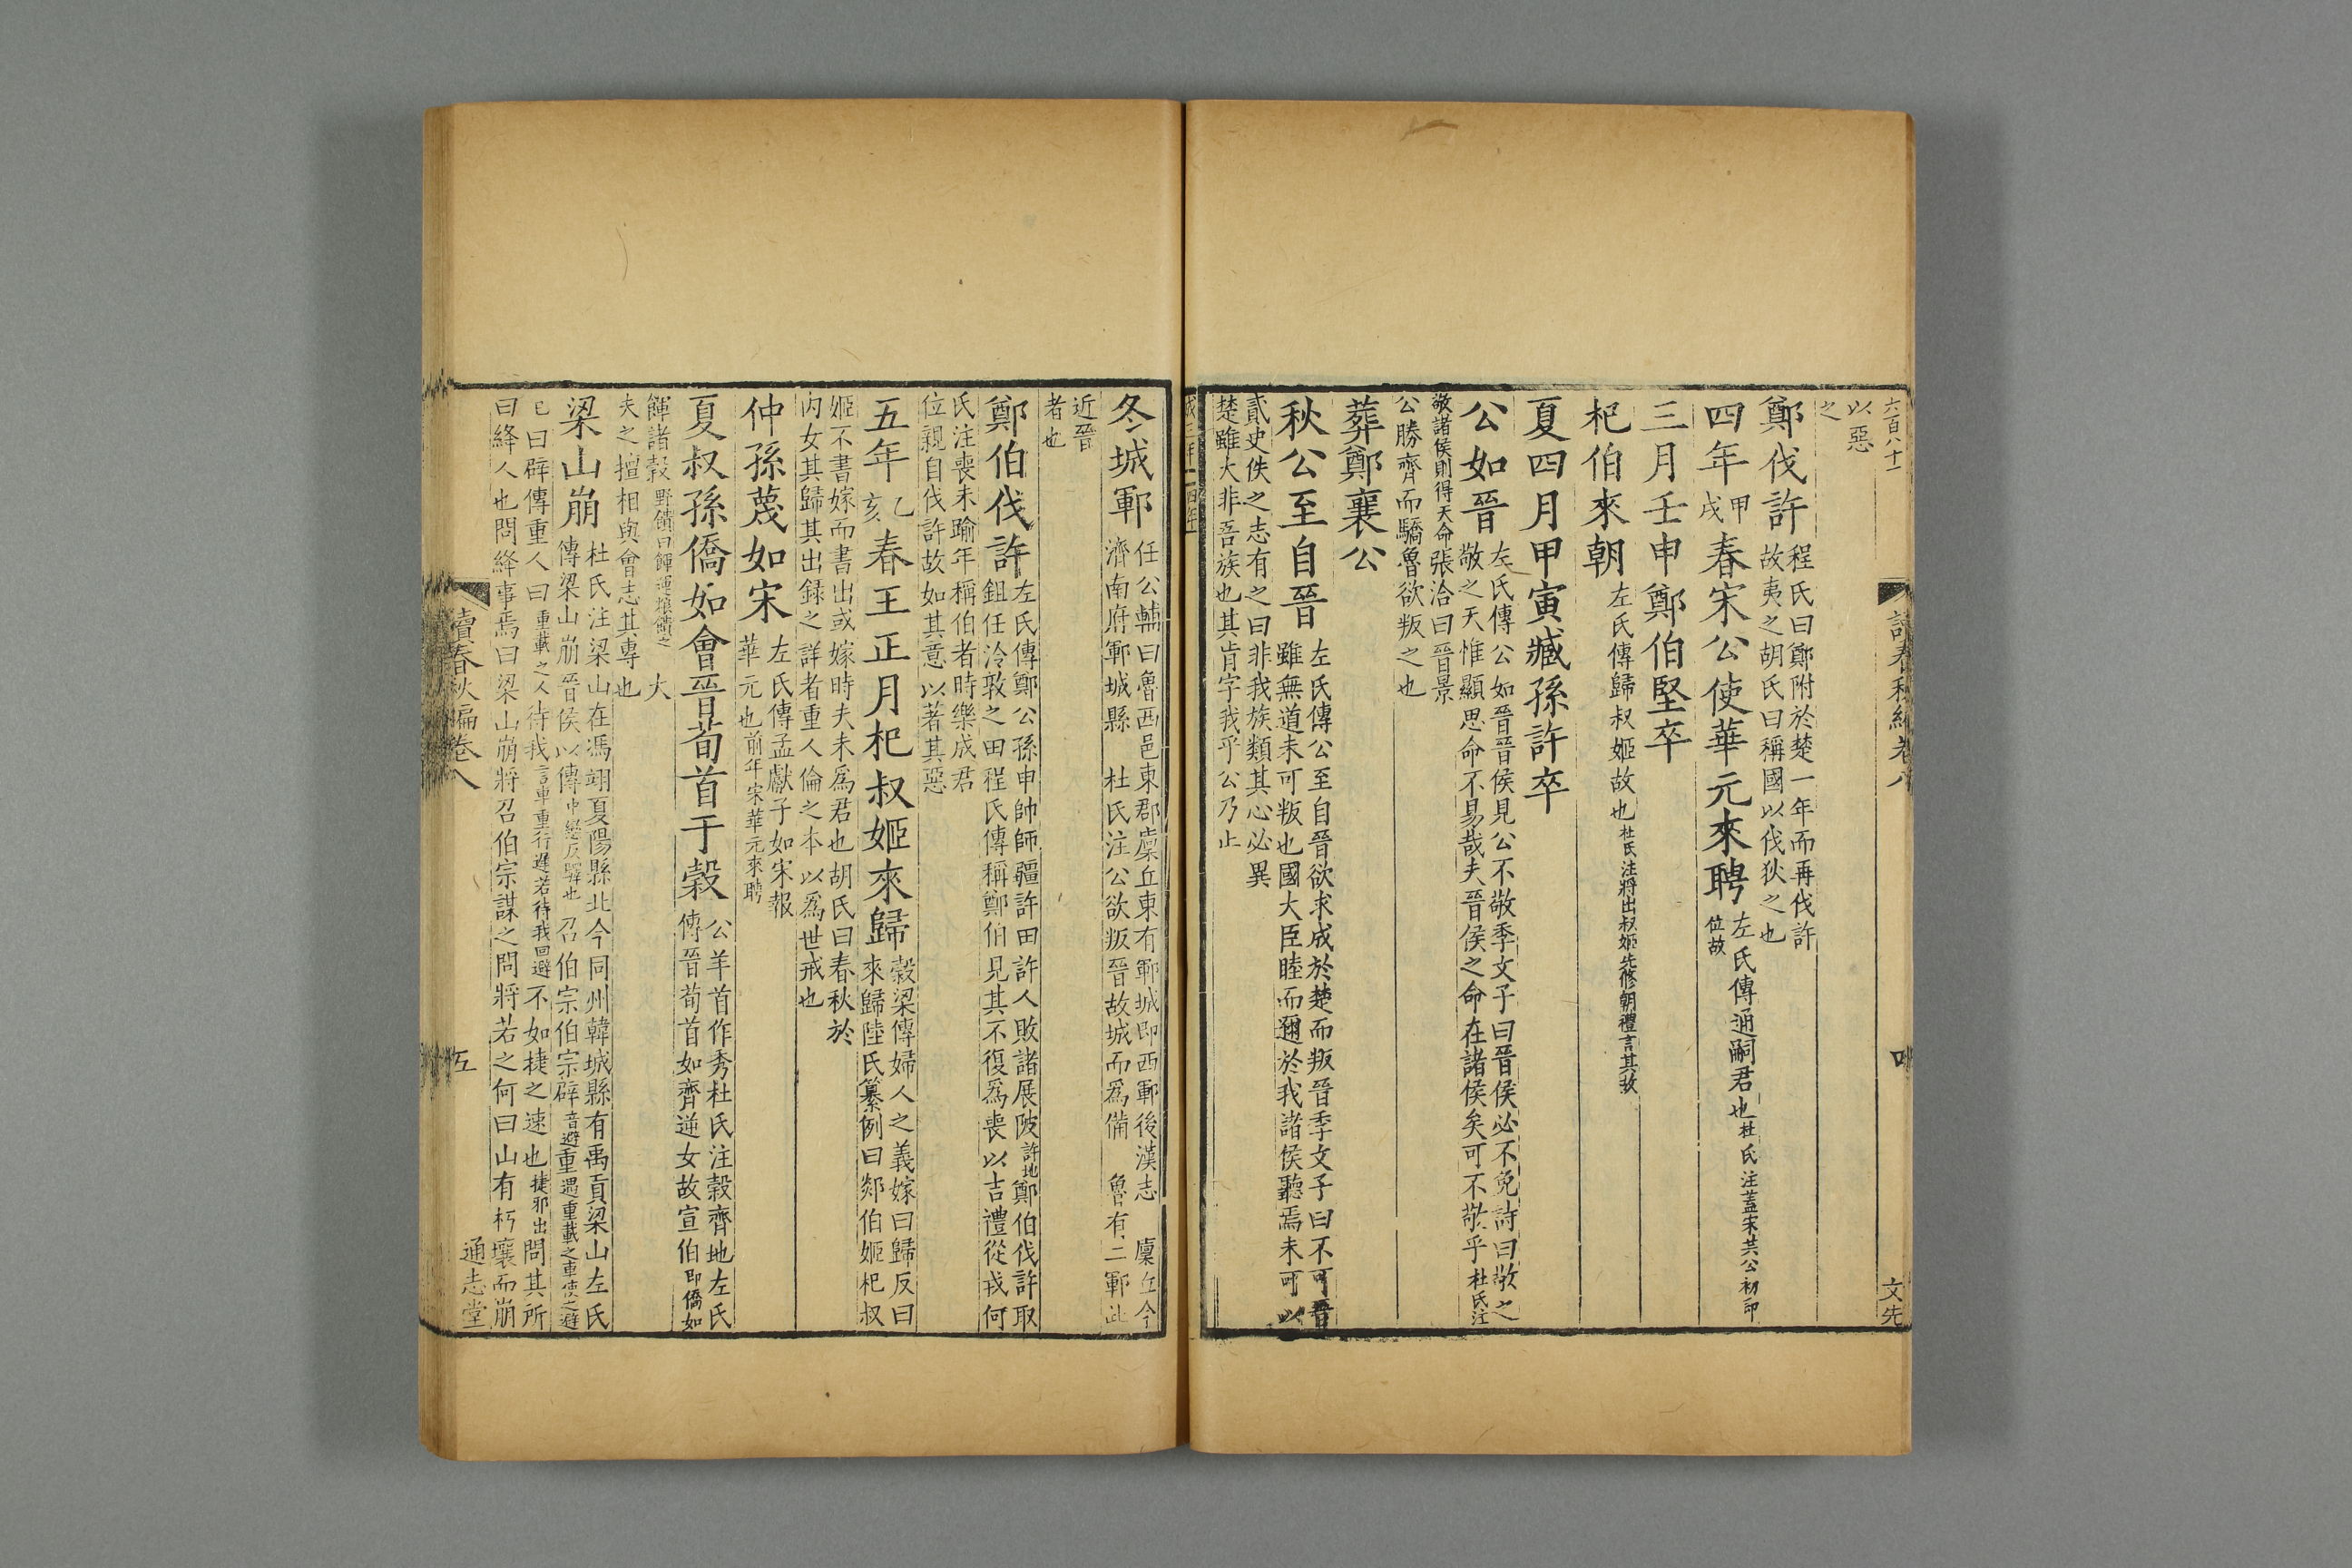 六百八十一
文先
以惡
之
鄭伐許程氏曰鄭附於楚一年而再伐許
故夷之胡氏曰稱國以伐狄之也
四年甲戌春宋公使華元來聘左氏傳通嗣君也杜氏注蓋宋共公初即
位故
三月壬申鄭伯堅卒
杞伯來朝左氏傳歸叔姬故也杜氏注將出叔姬先修朝禮言其故
夏四月甲寅臧孫許卒
公如晉左氏傳公如晉晉侯見公不敬季文子曰晉侯必不免詩曰敬之
敬之天惟顯思命不易哉夫晉侯之命在諸侯矣可不敬乎杜氏注
敬諸侯則得天命張洽曰晉景
公勝齊而驕魯欲叛之也
葬鄭襄公
秋公至自晉左氏傳公至自晉欲求成於楚而叛晉季文子曰不可晉
雖無道未可叛也國大臣睦而邇於我諸侯聽焉未可以
貳史佚之志有之曰非我族類其心必異
楚雖大非吾族也其肯字我乎公乃止
冬城鄆任公輔曰魯西邑東郡廩丘東有鄆城即西鄆後漢志 廩丘今
濟南府鄆城縣 杜氏注公欲叛晉故城而爲備 魯有二鄆此
近晉
者也
鄭伯伐許左氏傳鄭公孫申帥師疆許田許人敗諸展陂許地鄭伯伐許取
鉏任泠敦之田程氏傳稱鄭伯見其不復爲喪以吉禮從戎何
氏注喪未踰年稱伯者時樂成君
位親自伐許故如其意以著其惡
五年乙亥春王正月杞叔姬來歸穀梁傳婦人之義嫁曰歸反曰
來歸陸氏纂例曰郯伯姬杞叔
姬不書嫁而書出或嫁時夫未爲君也胡氏曰春秋於
內女其歸其出録之詳者重人倫之本以爲世戒也
仲孫蔑如宋左氏傳孟獻子如宋報
華元也前年宋華元來聘
夏叔孫僑如會晉荀首于榖公羊首作秀杜氏注榖齊地左氏
傳晉荀首如齊逆女故宣伯即僑如
餫諸榖野饋曰餫運糧饋之 大
夫之擅相與會志其專也
梁山崩杜氏注梁山在馮翊夏陽縣北今同州韓城縣有禹貢梁山左氏
傳梁山崩晉侯以傳中戀反驛也召伯宗伯宗辟音避重遇重載之車使之避
曰辟傳重人曰重載之人待我言車重行遲若待我回避不如捷之速也捷邪出問其所
曰絳人也問絳事焉曰梁山崩將召伯宗謀之問將若之何曰山有朽壤而崩
讀春秋編卷八
五
通志堂